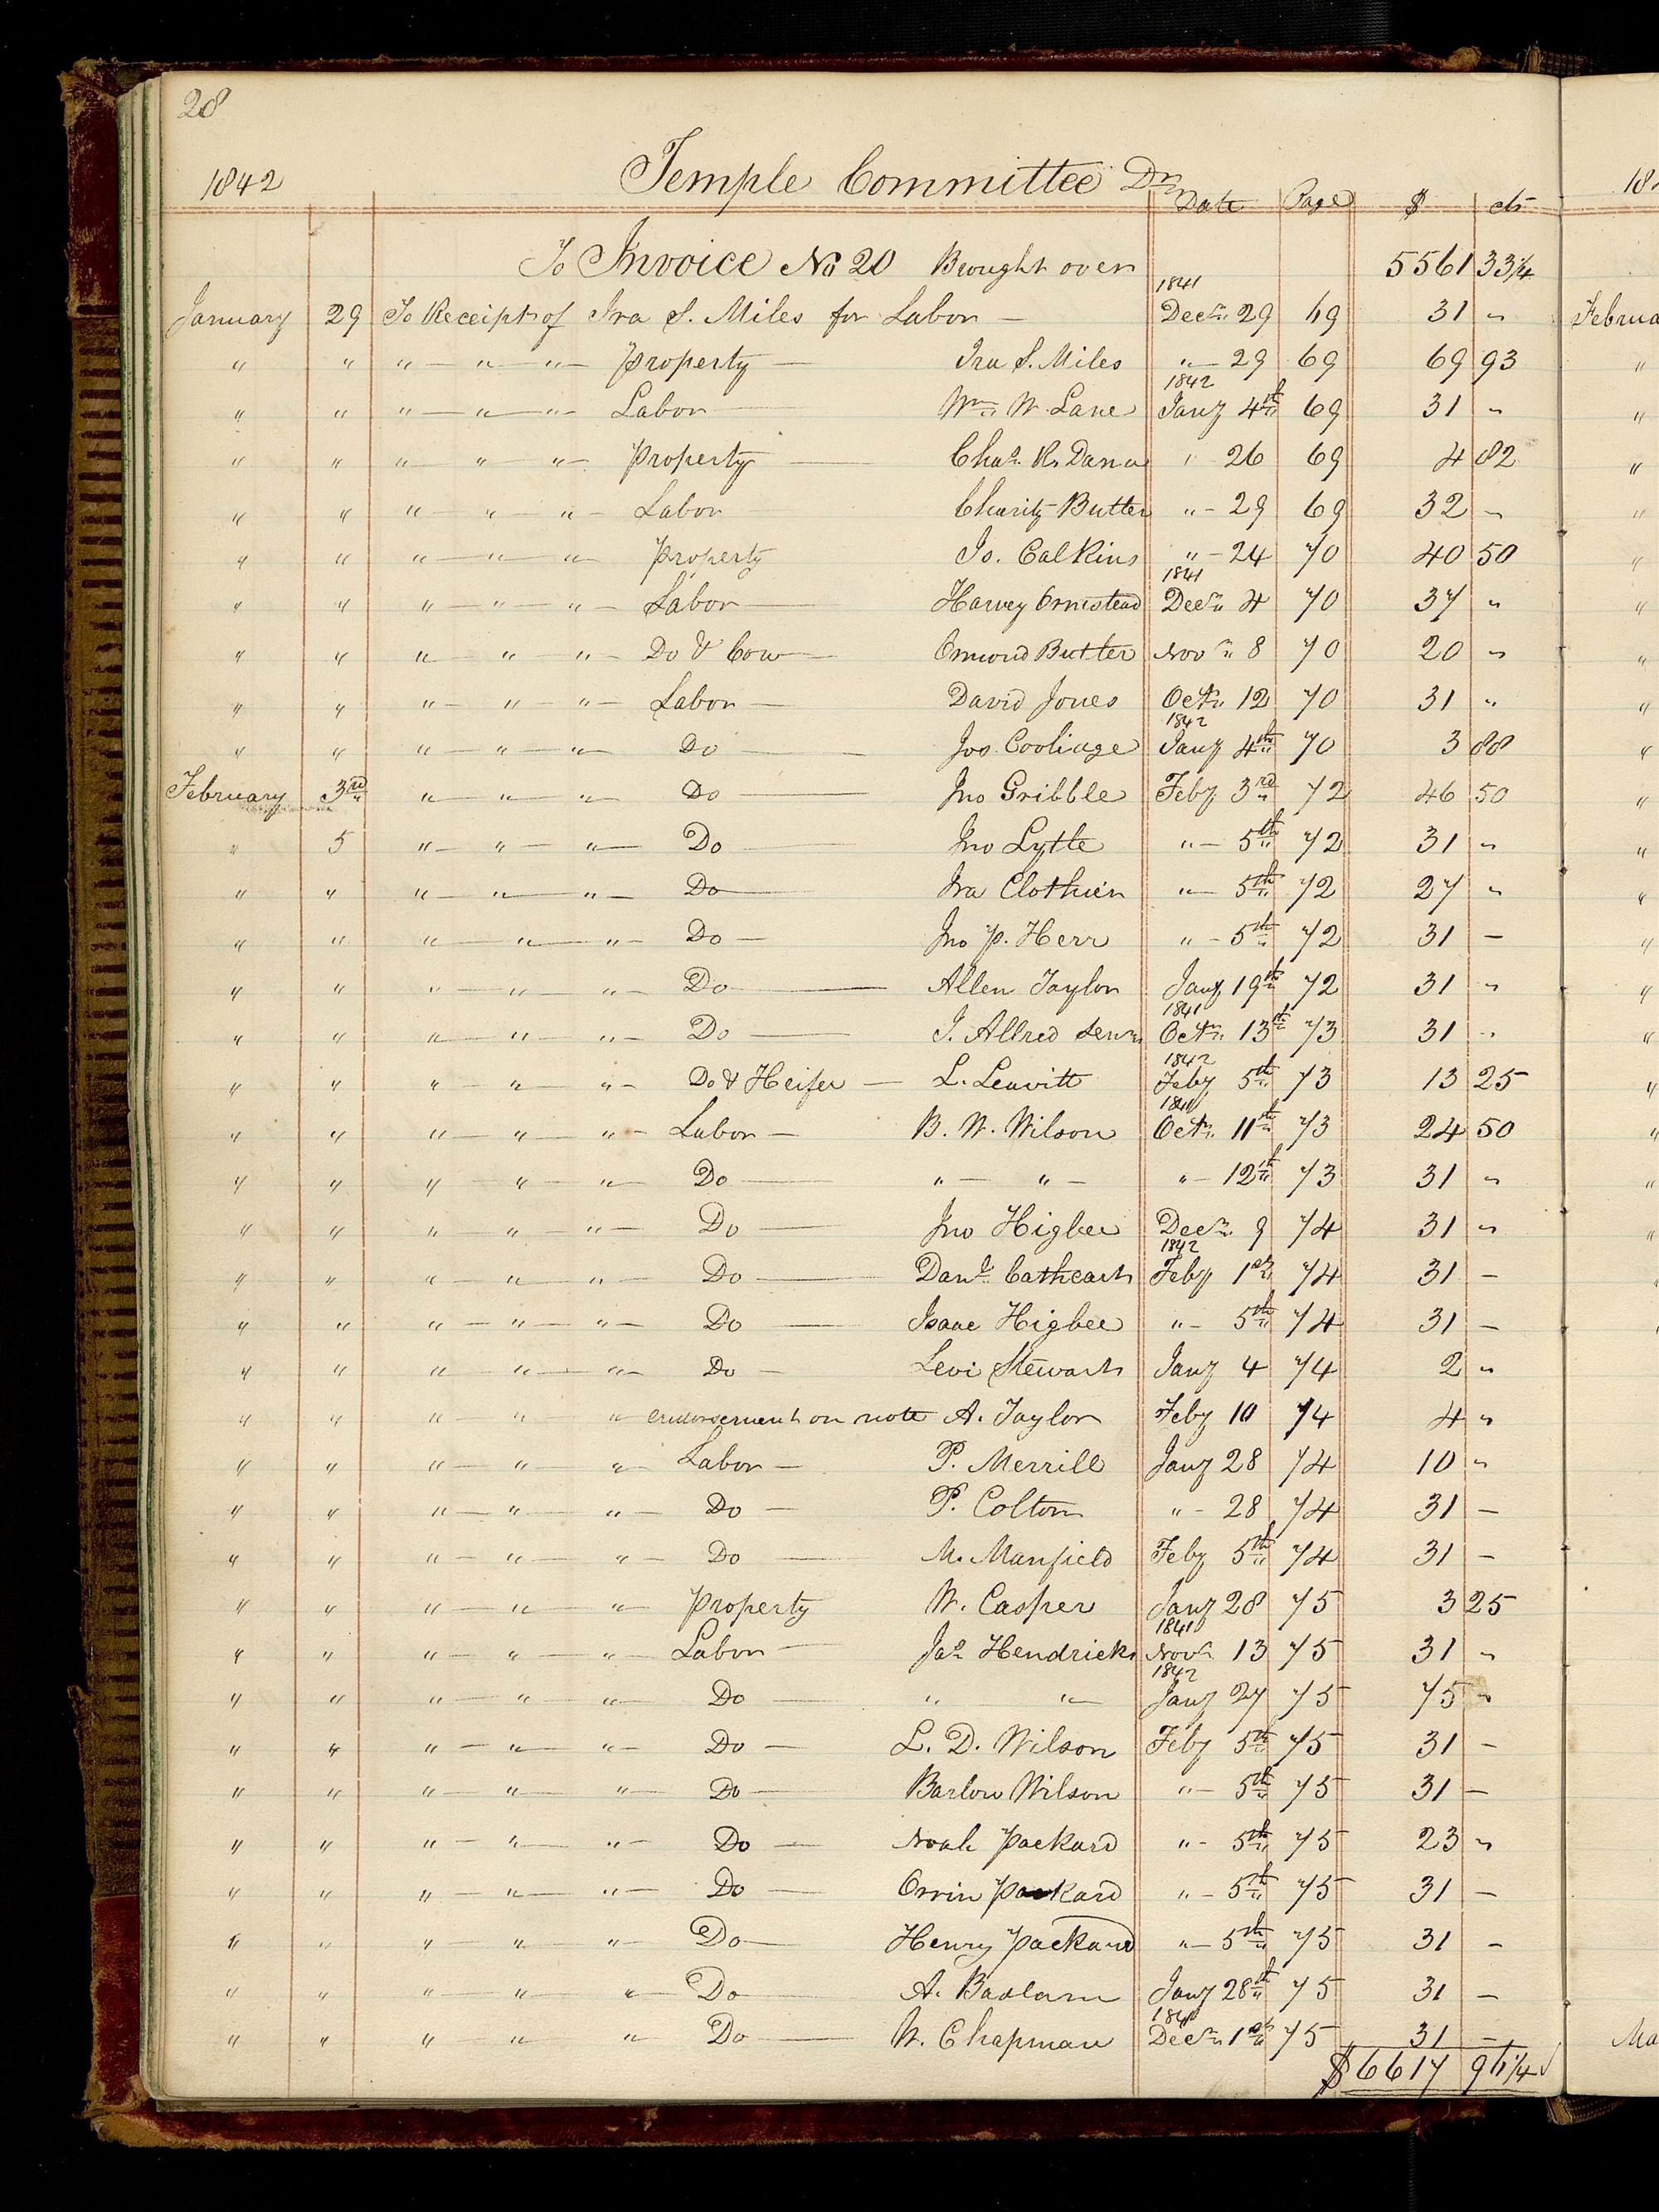 28
1842 Temple Committee Dr
Date Page $ cts
To Invoice No 20 Brought over 5561 33 1/4
January 29 To Receipt of Ira S. Miles for Labor — 1841 Decr 29 69 31 "
" " " — " — " — Property — Ira S. Miles " — 29 69 69 93
" " " — " — " — Labor — Wm W. Lane 1842 Jany 4th 69 31 "
" " " " " — Property — Chas R. Dana " - 26 69 4 82
" " " — " — " — Labor Charity Butter " - 29 69 32 "
" " " — " — " Property Jo. Calkins " - 24 70 40 50
" " " — " — " — Labor — Harvey Omstead 1841 Decr 4 70 37 "
" " " — " — " — Do & Cow — Ormond Butter Novr 8 70 20 "
" " " — " — " — Labor — David Jones Octr 12 70 31 "
" " " — " — " — Do — Jos. Cooliage 1842 Jany 4th 70 3 88
February 3rd " — " — " Do — Jno Gribble Feby 3rd 72 46 50
" 5 " — " — " — Do — Jno Lytle " — 5th 72 31 "
" " " — " — " — Do — Ira Clothier " — 5th 72 27 "
" " " — " — " — Do — Jno P. Herr " — 5th 72 31 —
" " " — " — " — Do — Allen Taylor Jany 19th 72 31 "
" " " — " — " — Do — I. Allred Senr 1841 Octr 13th 73 31 "
" " " — " — " — Do & Heifer — L. Leavitt 1842 Feby 5th 73 13 25
" " " — " — " — Labor — B. W. Wilson 1841 Octr 11th 73 24 50
" " " — " — " — Do — " — " — " — 12th 73 31 "
" " " — " — " — Do — Jno Higbee Decr 9 74 31 "
" " " — " — " — Do — Danl Cathcart 1842 Feby 1st 74 31 —
" " " — " — " — Do — Isaac Higbee " — 5th 74 31 —
" " " — " — " — Do — Levi Stewart Jany 4 74 2 "
" " " — " " endorsement on note A. Taylor Feby 10 74 4 "
" " " — " — " — Labor — P. Merrill Jany 28 74 10 "
" " " — " — " — Do — P. Colton " — 28 74 31 —
" " " — " — " — Do — M. Manfield Feby 5th 74 31 —
" " " — " — " — Property W. Casper Jany 28 75 3 25
" " " — " — " — Labor — Jas Hendricks 1841 Novr 13 75 31 "
" " " — " — " — Do — " " — 1842 Jany 27 75 75 "
" " " — " — " — Do — L. D. Wilson Feby 5th 75 31 —
" " " — " — " — Do — Barlow Wilson " — 5th 75 31 —
" " " — " — " — Do — Noah Packard " — 5th 75 23 "
" " " — " — " — Do — Orrin Packard " — 5th 75 31 —
" " " — " — " — Do — Henry Packard " — 5th 75 31 —
" " " — " — " — Do — A. Badlam Jany 28th 75 31 —
" " " — " — " Do — W. Chapman 1841 Decr 1st 75 31 —
$6617 96 1/4
Februa
Ma